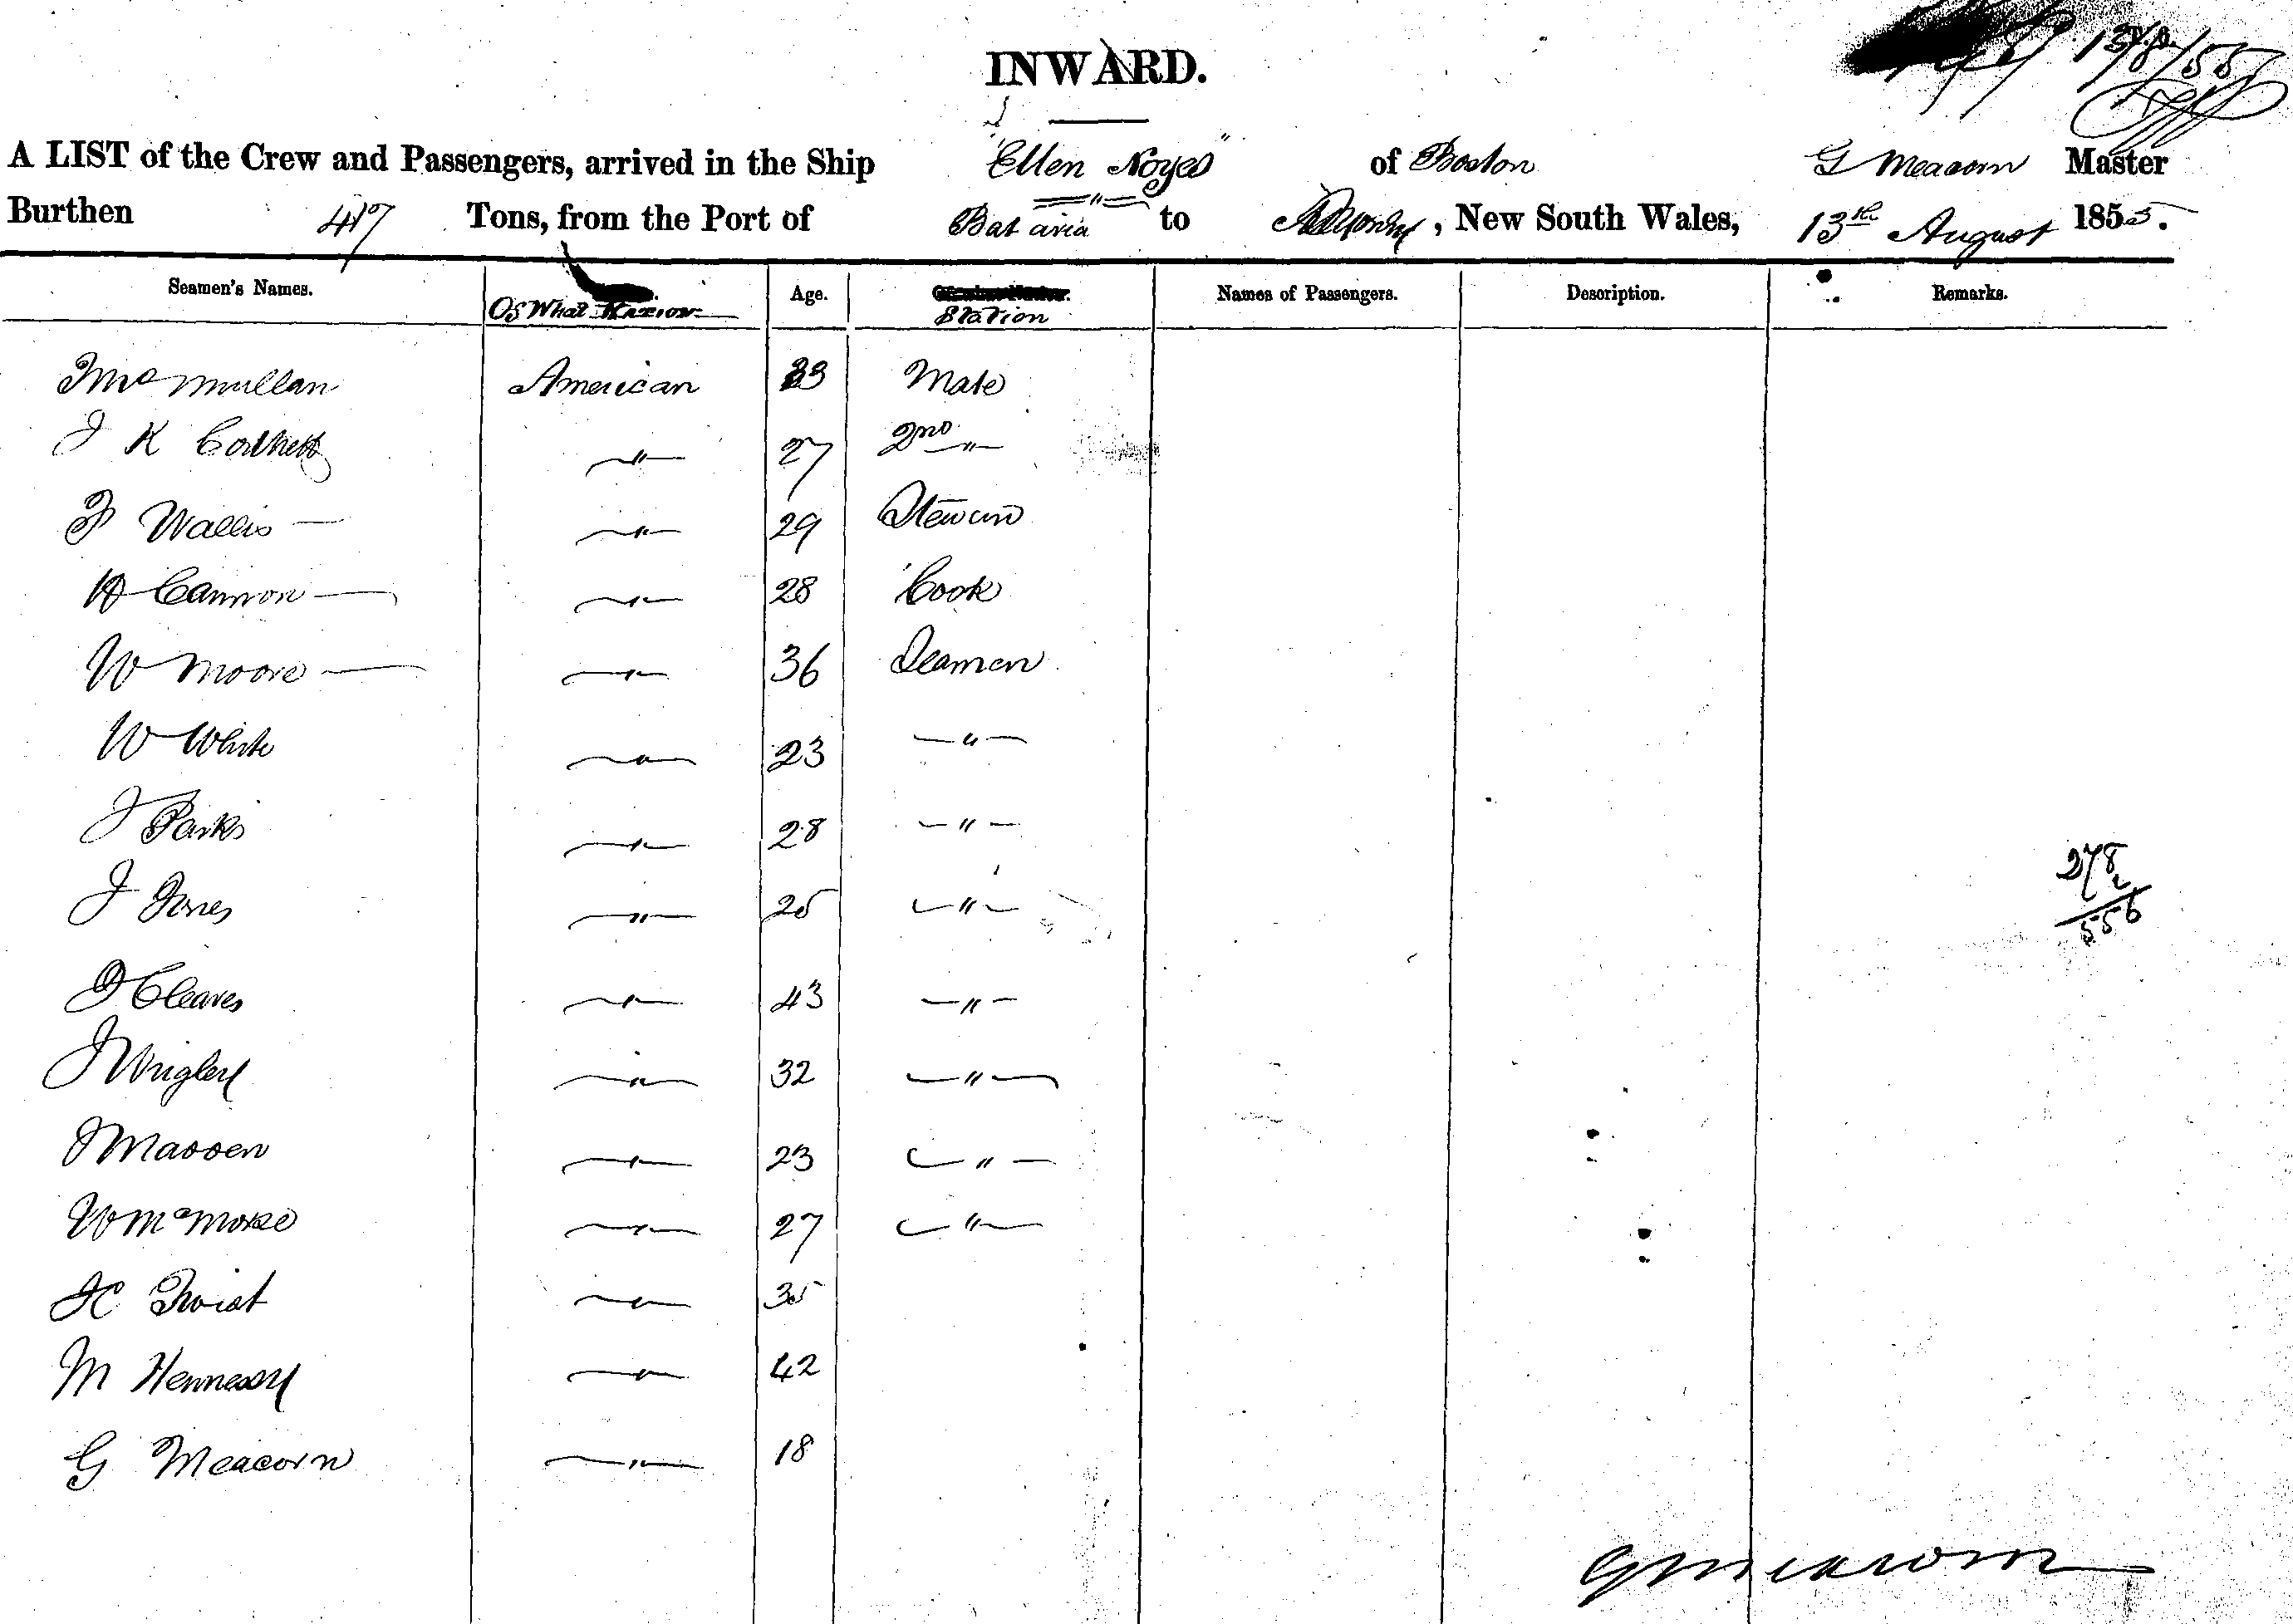 13/8/55
INWARD.
A LIST of the Crew and Passengers, arrived in the Ship "Ellen Noyes" of Boston G Meacom Master
Burthen 417 Tons, from the Port of Batavia to Sydney, New South Wales, 13th August 1855.
Seamen's Names. Of What Nation Age. Station Names of Passengers. Description. Remarks.
McMullan American 33 Mate
J K Corbett " 27 2nd "
F Wallis — " 29 Steward
H Cannon — " 28 Cook
W Moore — " 36 Seamen
W White " 23 "
J Parks " 28 "
J Jones " 25 "
278
2
556
D Cleaves " 43 "
J Wrigley " 32 "
J Massen " 23 "
W McMoxse " 27 "
Twist " 35
M Hennessy " 42
G Meacom " 18
G Meacom